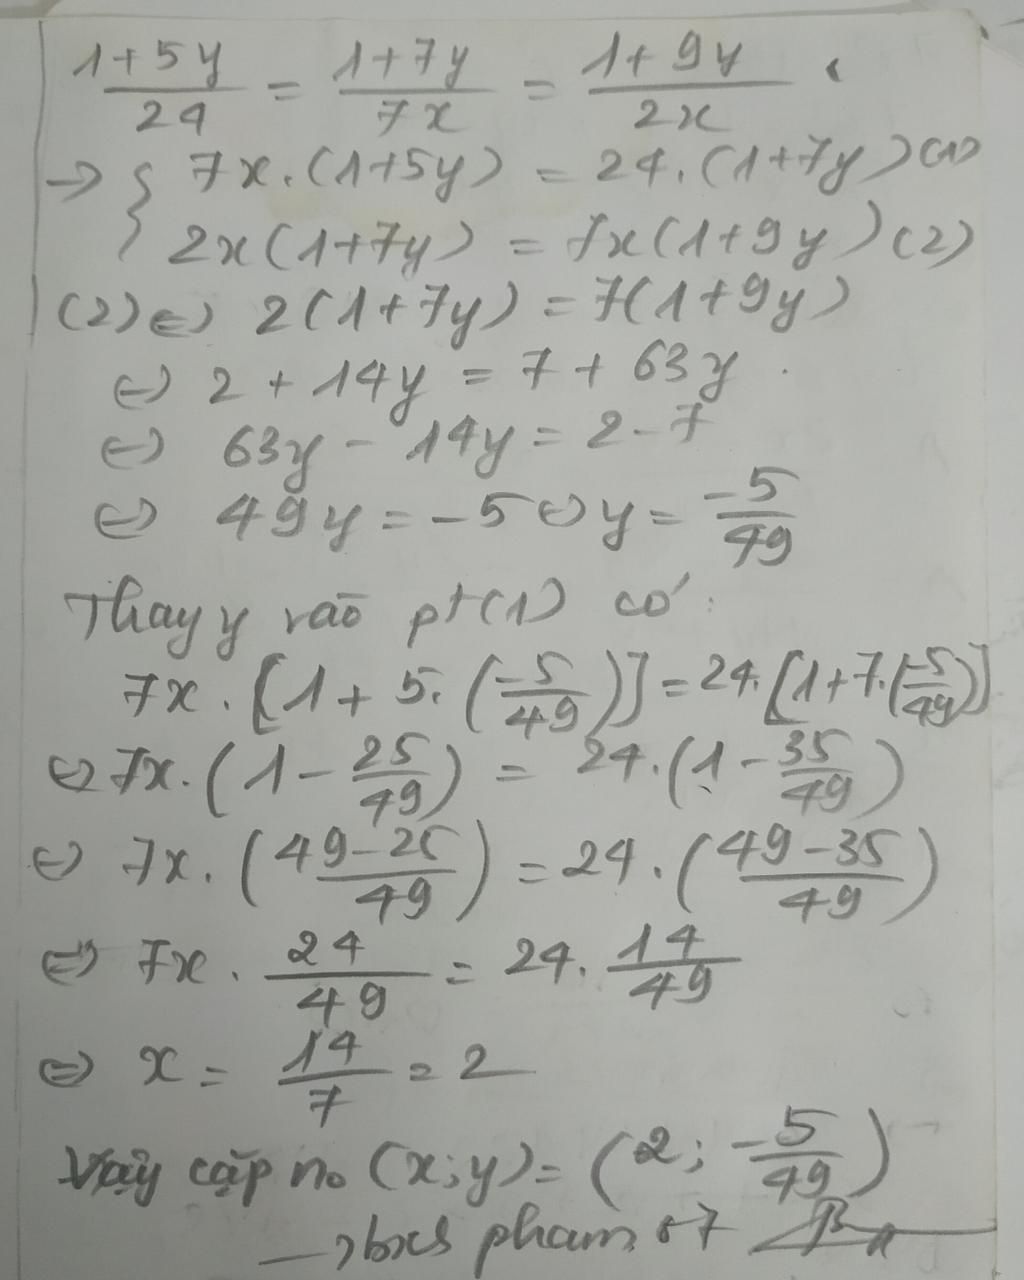 1+5y/24 = 1+7y/7x = 1+9y/2x
→ { 7x.(1+5y) = 24.(1+7y) (1)
2x(1+7y) = 7x(1+9y) (2)
(2) ⇔ 2(1+7y) = 7(1+9y)
⇔ 2 + 14y = 7 + 63y
⇔ 63y - 14y = 2 - 7
⇔ 49y = -5 ⇔ y = -5/49
Thay y vào pt(1) có:
7x . [1 + 5. (-5/49)] = 24. [1+7.(-5/49)]
⇔ 7x.(1 - 25/49) = 24.(1 - 35/49)
⇔ 7x. (49-25/49) = 24. (49-35/49)
⇔ 7x . 24/49 = 24. 14/49
⇔ x = 14/7 = 2
Vậy cặp no (x;y) = (2; -5/49)
pham 07